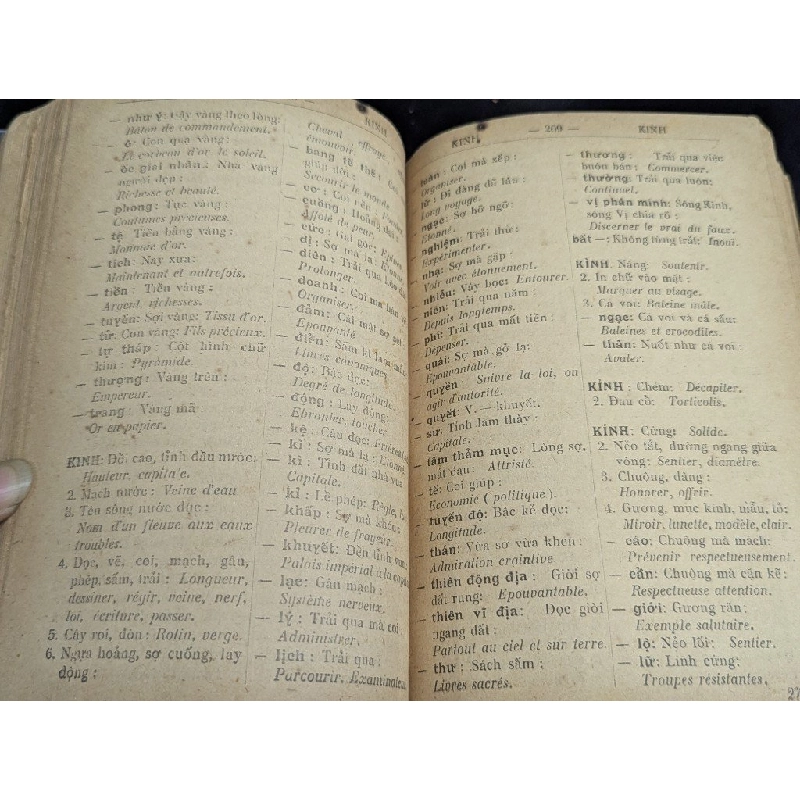 KINH
— như ý: Gậy vàng theo lòng:
Bâton de commandement.
— ô: Con quạ vàng:
Le corbeau d'or, le soleil.
— ốc giai nhân: Nhà vàng
người đẹp:
Richesse et beauté.
— phong: Tục vàng:
Coutumes précieuses.
— tệ: Tiền bằng vàng:
Monnaie d'or.
— tích: Nay xưa:
Maintenant et autrefois.
— tiền: Tiền vàng:
Argent, richesses.
— tuyến: Sợi vàng: Tissu d'or.
— tử: Con vàng: Fils précieux.
— tự tháp: Cột hình chữ
kim: Pyramide.
— thượng: Vàng trên:
Empereur.
— trang: Vàng mã
Or en papier.
KINH: Đồi cao, tỉnh đầu nước.
Hauteur, capitale.
2. Mạch nước: Veine d'eau
3. Tên sông nước đục:
Nom d'un fleuve aux eaux
troubles.
4. Dọc, vẽ, coi, mạch, gân,
phép, sấm, trải: Longueur,
dessiner, régir, veine, nerf,
loi, écriture, passer.
5. Cây roi, đòn: Rotin, verge.
6. Ngựa hoảng, sợ cuống, lay
động:
Cheval
émouvoir.
— bang tế thế:
giúp đời:
Secourir le monde
— cụ:
— cuồng: Hoảng
Affolé de peur.
— cức: Gai góc:
— dị: Sợ mà lạ:
— diên: Trải qua
Prolonger.
— doanh: Coi mà
Organiser.
— đảm: Cái mật sợ
Epouvanté
— điển: Sấm
Livres canoniques.
— độ: Bậc dọc:
Degré de longitude.
— động: Lay động:
Ebranler, toucher.
— kệ: Câu đọc:
— kì: Sợ mà lạ:
— kì: Tỉnh đất nhà vua
Capitale.
— kỉ: Lễ phép: Règle,
— khấp: Sợ mà khóc:
Pleurer de frayeur.
— khuyết: Đền tỉnh
Palais impérial à la
— lạc: Gân mạch:
Système nerveux.
— lý: Trải qua mà coi
Administrer.
— lịch: Trải qua:
Parcourir. Examiner
KINH — 209 — KINH
— luân: Coi mà sếp:
Organiser.
— lữ: Đi đàng dữ lâu:
Long voyage.
— ngạc: Sợ bỡ ngỡ:
Etonné.
— nghiệm: Trải thức:
Expérimenter.
— nhạ: Sợ mà gặp:
Voir avec étonnement.
— nhiễu: Vây bọc: Entourer.
— niên: Trải qua năm:
Depuis longtemps.
— phí: Trải qua mất tiền:
Dépenser.
— quái: Sợ mà gỡ lạ:
Epouvantable.
— quyền Suivre la loi, ou
agir d'autorité.
— quyết V. — khuyết.
— sư: Tỉnh lắm thầy:
Capitale.
— tâm thảm mục: Lòng sợ,
mắt rầu: Attristé.
— tế: Coi giúp:
Economie (politique).
— tuyến độ: Bậc kẻ dọc:
Longitude.
— thán: Vừa sợ vừa khen:
Admiration craintive
— thiên động địa: Giời sợ
đất rung: Epouvantable.
— thiên vĩ địa: Dọc giời
ngang đất:
Partout au ciel et sur terre.
— thư: Sách sấm:
Livres sacrés.
— thương: Trải qua việc
buôn bán: Commercer.
— thường: Trải qua luôn:
Continuel.
— vị phân minh: Sông Kinh,
sông Vị chia rõ:
Discerner le vrai du faux.
bất —: Không từng trải: Inouï.
KÌNH. Nâng: Soutenir.
2. In chữ vào mặt:
Marquer au visage.
3. Cá voi: Baleine mâle.
— ngạc: Cá voi và cá sấu:
Baleines et crocodiles.
— thân: Nuốt như cá voi:
Avaler.
KỈNH: Chém: Décapiter.
2. Đau cổ: Torticolis.
KÍNH: Cứng: Solide.
2. Nẻo tắt, đường ngang giữa
vòng: Sentier, diamètre.
3. Chuộng, dâng:
Honorer, offrir.
4. Gương, mục kính, mẫu, tỏ:
Miroir, lunette, modèle, clair.
— cáo: Chuộng mà mách:
Prévenir respectueusement.
— cẩn: Chuộng mà cặn kẽ:
Respectueuse attention.
— giới: Gương răn:
Exemple salutaire.
— lộ: Nẻo lối: Sentier.
— lữ: Lính cứng:
Troupes résistantes.
27